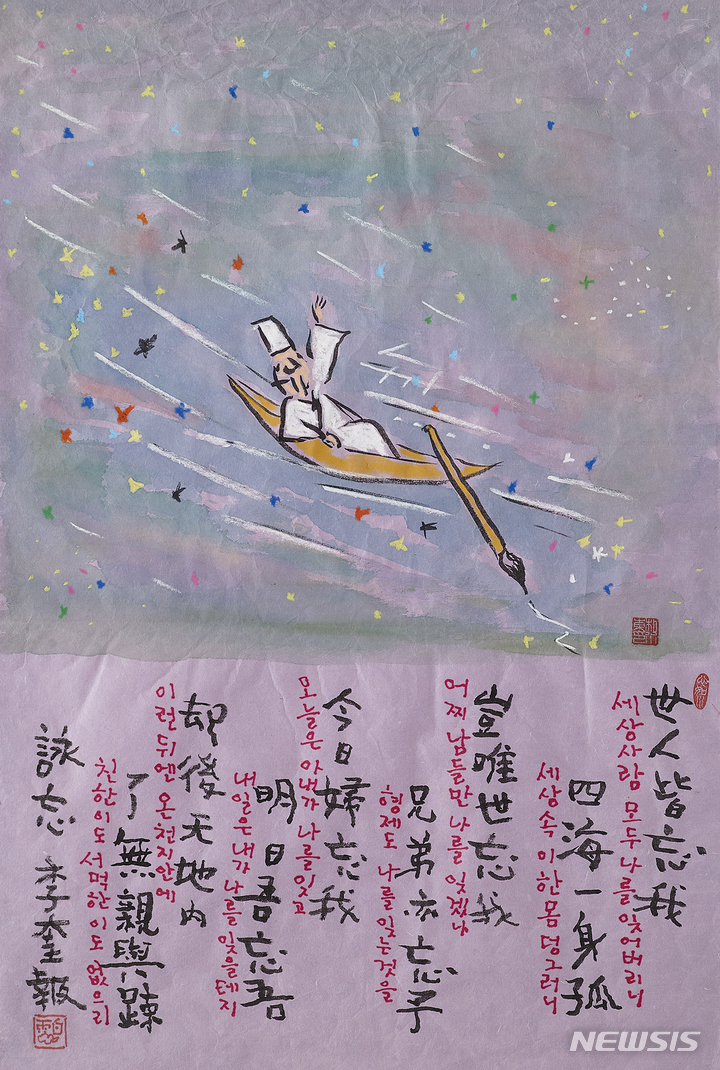 世人皆忘我
세상사람 모두 나를 잊어버리니
四海一身孤
세상속 이 한몸 덩그러니
豈唯世忘我
어찌 남들만 나를 잊겠나
兄弟亦忘予
형제도 나를 잊는것을
今日婦忘我
오늘은 아내가 나를 잊고
明日吾忘吾
내일은 내가 나를 잊을테지
却後天地內
이런뒤엔 온천지안에
了無親與踈
친한이도 서먹한이도 없으리
詠忘 李奎報
NEWSIS